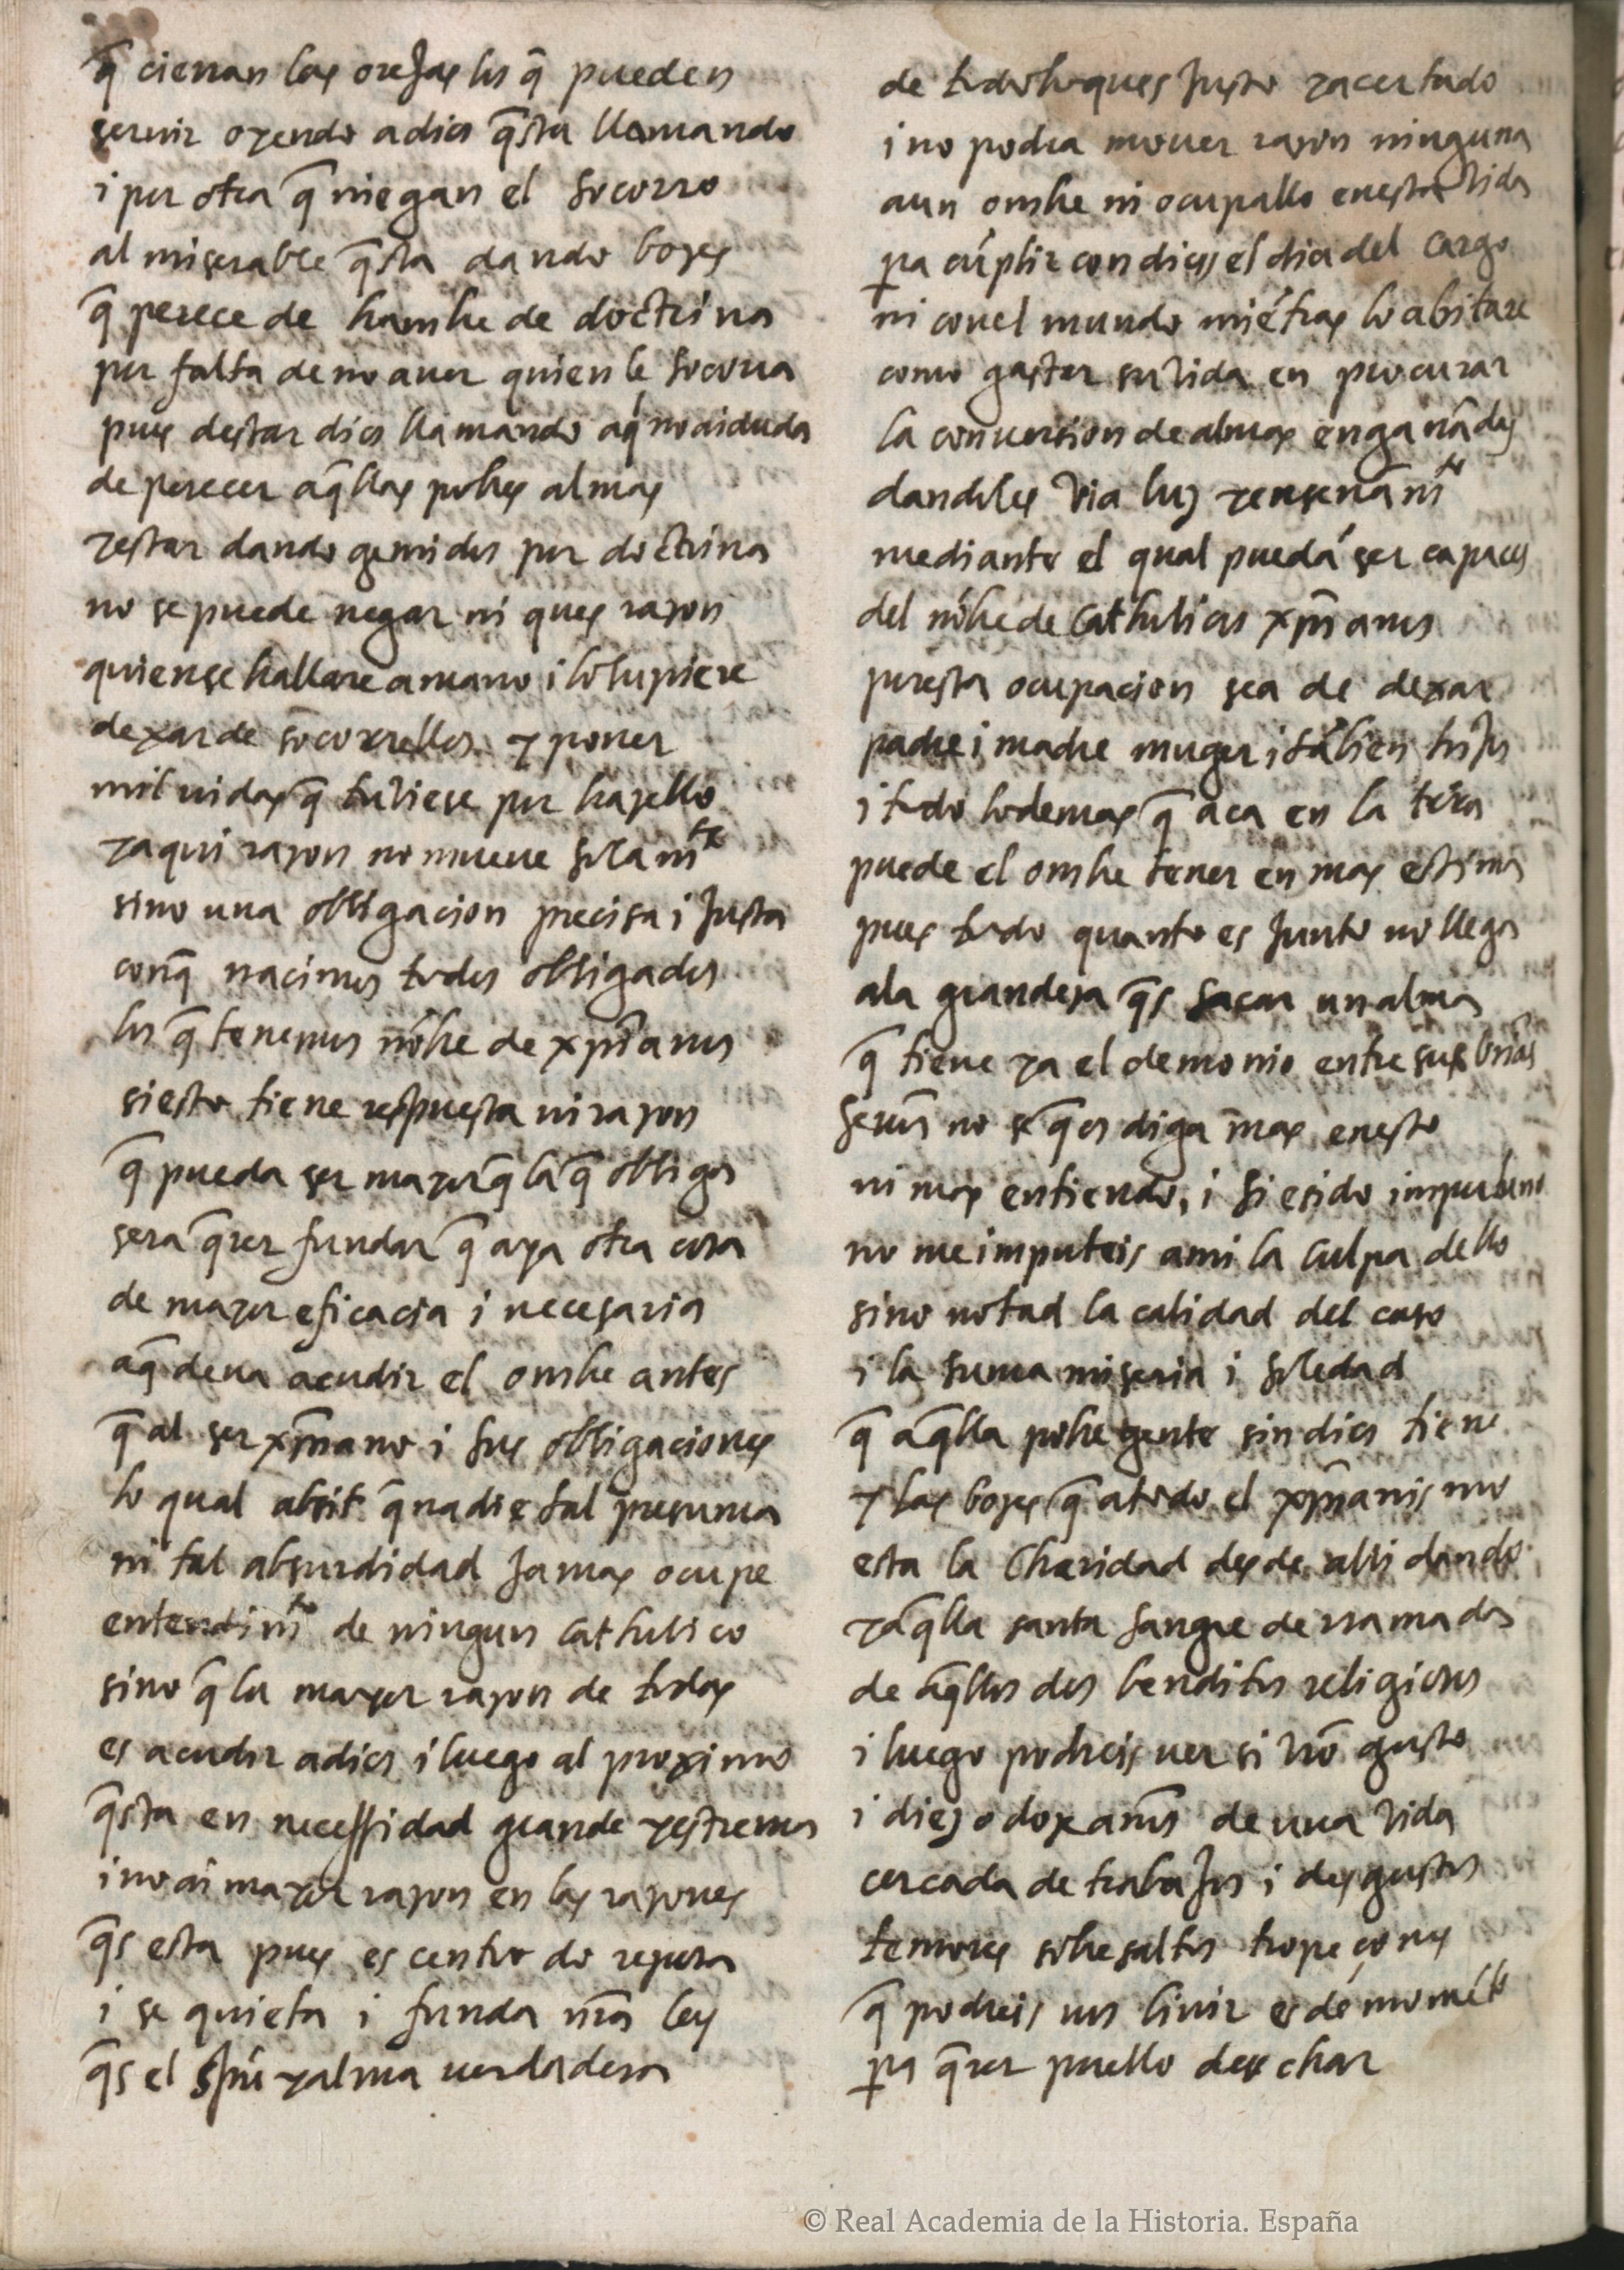 q̃ cierran las orejas los q̃ pueden
seruir oyendo a dios q̃sta llamando
i por otra q̃ niegan el socorro
al miserable q̃sta dando bozes
q̃ perece de hambre de doctrina
por falta de no auer quien le socorra
pues destar dios llamando aq̃ no ai duda
de perecer aq̃llas pobres almas
y estar dando gemidos por doctrina
no se puede negar ni ques razon
quien se hallare a mano i lo supiere
dexar de socorrellos y poner
mil uidas q̃ tuviese por hazello
y aqui razon no mueve solam̃te
sino una obligacion precisa i justa
conq̃ nacimos todos obligados
los q̃ tenemos nõbre de xp̃ianos
si esto tiene respuesta ni razon
q̃ pueda ser mayor q̃ la q̃ obliga
sera q̃rer fundar q̃ aya otra cosa
de mayor eficacia i necesaria
aq̃ deua acudir el ombre antes
q̃ al ser xp̃iano i sus obligaciones
lo qual absit q̃ nadie tal presuma
ni tal absurdidad jamas ocupe
entendim̃to de ningun catholico
sino q̃ la mayor razon de todas
es acudir a dios i luego al proximo
q̃sta en necessidad grande y estrema
i no ai mayor razon en las razones
q̃s esta pues es centro do reposa
i se quieta i funda nr̃a ley
q̃s el spũ y alma uerdadera
de todo lo ques justo y acertado
i no podra mouer razon ninguna
a un ombre ni ocupallo en esta vida
pa cũplir con dios el dia del cargo
ni con el mundo miẽtras lo abitare
como gastar su vida en procurar
la conuersion de almas engañadas
dandoles via luz y enseñam̃to
mediante el qual puedã ser capaces
del nõbre de catholicos xp̃ianos
por esta ocupacion sea de dexar
padre i madre muger i tãbien hijos
i todo lo demas q̃ aca en la tr̃ra
puede el ombre tener en mas estima
pues todo quanto es junto no llega
a la grandeza q̃s sacar un alma
q̃ tiene ya el demonio entre sus uñas
señor no se q̃ os diga mas en esto
ni mas entiendo, i si e sido importuno
no me imputeis a mi la culpa dello
sino notad la calidad del caso
i la suma miseria i soledad
q̃ aq̃lla pobre gente sin dios tiene
y las bozes q̃ a todo el xp̃ianismo
esta la charidad desde alli dando
y aq̃lla santa sangre derramada
de aq̃llos dos benditos religiosos
i luego podreis uer si vr̃o gusto
i diez o doze años de una vida
cercada de trabajos i desgustos
temores sobresaltos tropeçones
q̃ podreis uos biuir es de momẽto
pa q̃rer por ello desechar